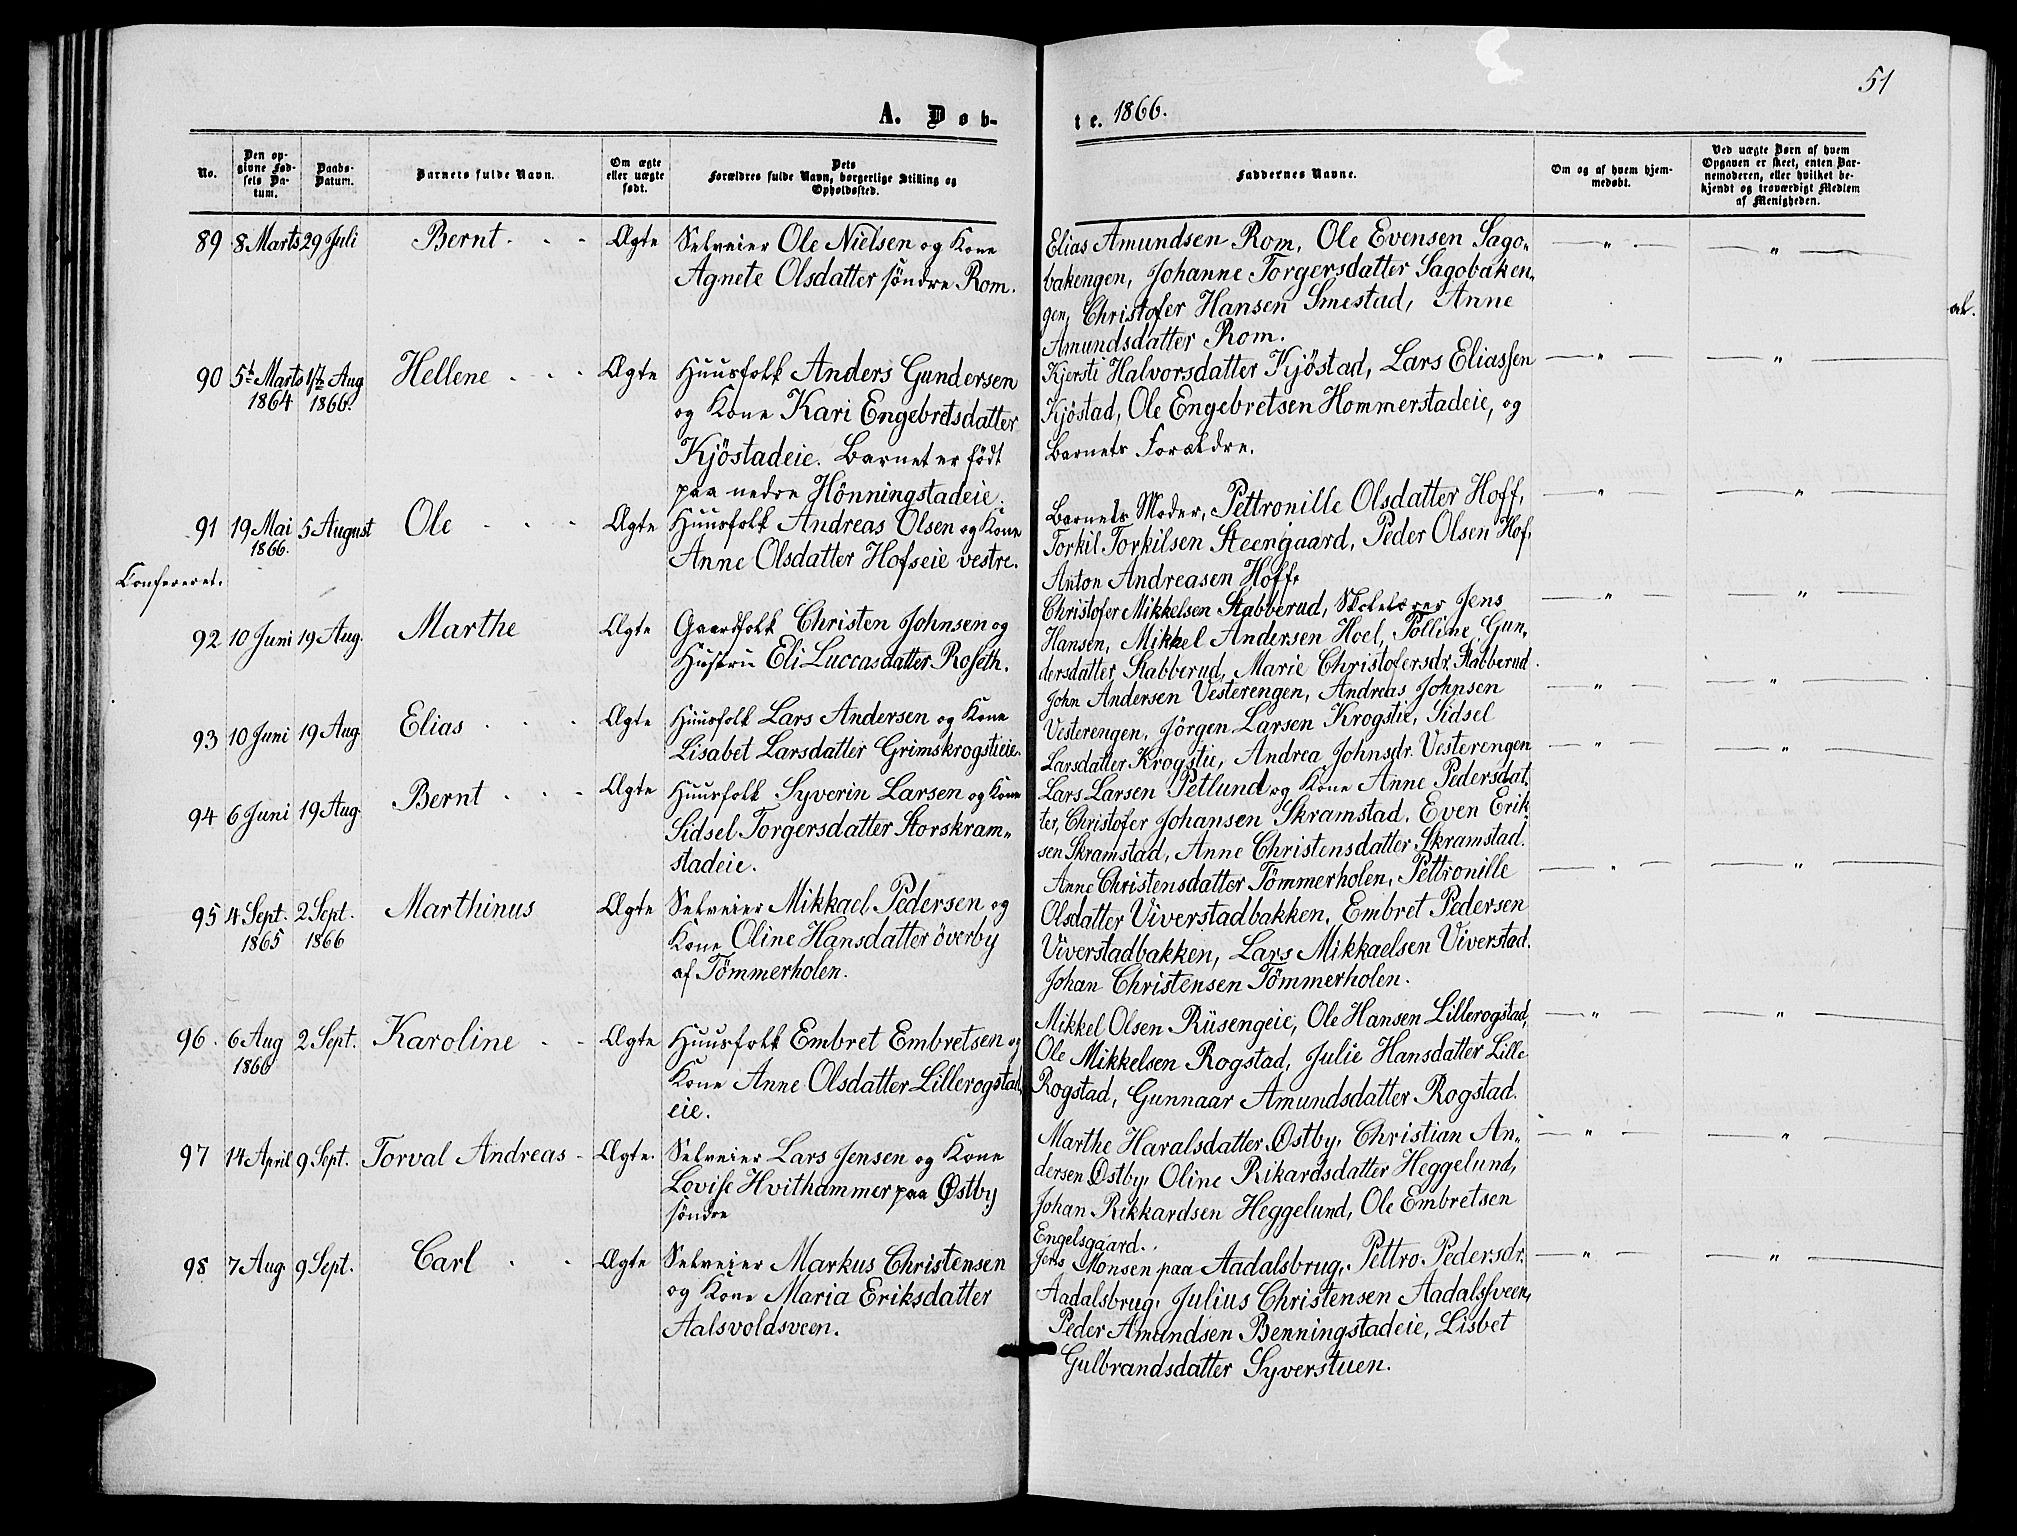 51
A. Døb-
te. 1866.
No.
Den op-
givne Fød-
sels Da-
tum.
Daabs-
Datum.
Barnets fulde Navn.
Om ægte
eller uægte
født.
Dets
Forældres fulde Navn, borgerlige Stilling og
Opholdssted.
Faddernes Navne.
Om og af hvem hjem-
medøbt.
Ved uægte Børn af hvem
Opgaven er skeet, enten Bar-
nemoderen, eller hvilket be-
kjendt og troværdigt Medlem
af Menigheden.
89 8 Marts 29 Juli Bernt Ægte
Selveier Ole Nielsen og Kone
Agnete Olsdatter söndre Rom.
Elias Amundsen Rom, Ole Evensen Sago„
bakengen, Johanne Torgersdatter Sagobaken„
gen, Christofer Hansen Smestad, Anne
Amundsdatter Rom.
90 5te Marts 17de Aug Hellene Ægte
1864 1866.
Huusfolk Anders Gundersen
og Kone Kari Engebretsdatter
Kjöstadeie. Barnet er födt
paa nedre Hönningstadeie.
Kjersti Halvorsdatter Kjöstad, Lars Eliassen
Kjöstad, Ole Engebretsen Hommerstadeie, og
Barnets Forældre.
91 19 Mai 5 August Ole Ægte
1866.
Huusfolk Andreas Olsen og Kone
Anne Olsdatter Hofseie vestre.
Barnets Moder, Pettronille Olsdatter Hoff,
Torkil Torkilsen Steengaard, Peder Olsen Hof,
Anton Andreasen Hoff.
Confereret.
92 10 Juni 19 Aug. Marthe Ægte
Gaardfolk Christen Johnsen og
Hustru Eli Luccasdatter Roseth.
Christofer Mikkelsen Stabberud, Skolelærer Jens
Hansen, Mikkel Andersen Hoel, Polline Gun„
dersdatter Stabberud, Marie Christofersdr. Stabberud.
93 10 Juni 19 Aug Elias Ægte
Huusfolk Lars Andersen og Kone
Lisabet Larsdatter Grimskrogstieie.
John Andersen Vesterengen, Andreas Johnsen
Vesterengen, Jörgen Larsen Krogstie, Sidsel
Larsdatter Krogstie, Andrea Johnsdr. Vesterengen
94 6 Juni 19 Aug Bernt Ægte
Huusfolk Syverin Larsen og Kone
Sidsel Torgersdatter Storskram„
stadeie.
Lars Larsen Petlund og Kone Anne Pedersdat„
ter, Christofer Johansen Skramstad, Even Erik
sen Skramstad, Anne Christensdatter Skramstad.
95 4 Sept. 2 Sept. Marthinus Ægte
1865 1866
Selveier Mikkael Pedersen og
Kone Oline Hansdatter överby
af Tömmerholen.
Anne Christensdatter Tömmerholen, Pettronille
Olsdatter Viverstadbakken, Embret Pedersen
Viverstadbakken, Lars Mikkaelsen Viverstad.
Johan Christensen Tömmerholen.
96. 6 Aug 2 Sept. Karoline Ægte
1866
Huusfolk Embret Embretsen og
Kone Anne Olsdatter Lillerogstad„
eie.
Mikkel Olsen Rüsengeie, Ole Hansen Lillerogstad,
Ole Mikkelsen Rogstad, Julie Hansdatter Lille
Rogstad, Gunnaar Amundsdatter Rogstad.
97 14 April 9 Sept. Torval Andreas Ægte.
Selveier Lars Jensen og Kone
Lovise Hvithammer paa Østby
söndre
Marthe Haralsdatter Østby, Christian An„
dersen Østby, Oline Rikardsdatter Heggelund,
Johan Rikkardsen Heggelund, Ole Embretsen
Engelsgaard.
98 7 Aug 9 Sept. Carl Ægte
Selveier Markus Christensen
og Kone Maria Eriksdatter
Aalsvoldsveen.
Jens Monsen paa Aadalsbrug, Pettro Pedersdr.
Aadalsbrug, Julius Christensen Aadalssveen,
Peder Amundsen Benningstadeie, Lisbet
Gulbrandsdatter Syverstuen.